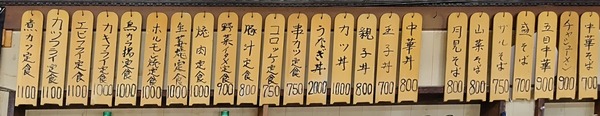 中華そば 700
チャーシューメン 900
五目中華 900
盛そば 700
ザルそば 750
山菜そば 800
月見そば 800
中華丼 800
玉子丼 700
親子丼 800
カツ丼 1000
うなぎ丼 2000
串カツ定食 750
コロッケ定食 750
豚汁定食 800
野菜イタメ定食 900
焼肉定食 1000
生姜焼定食 1000
ホルモン焼定食 1000
鳥カツ定食 1000
カキフライ定食 1000
エビフライ定食 1100
カツフライ定食 1100
煮カツ定食 1100